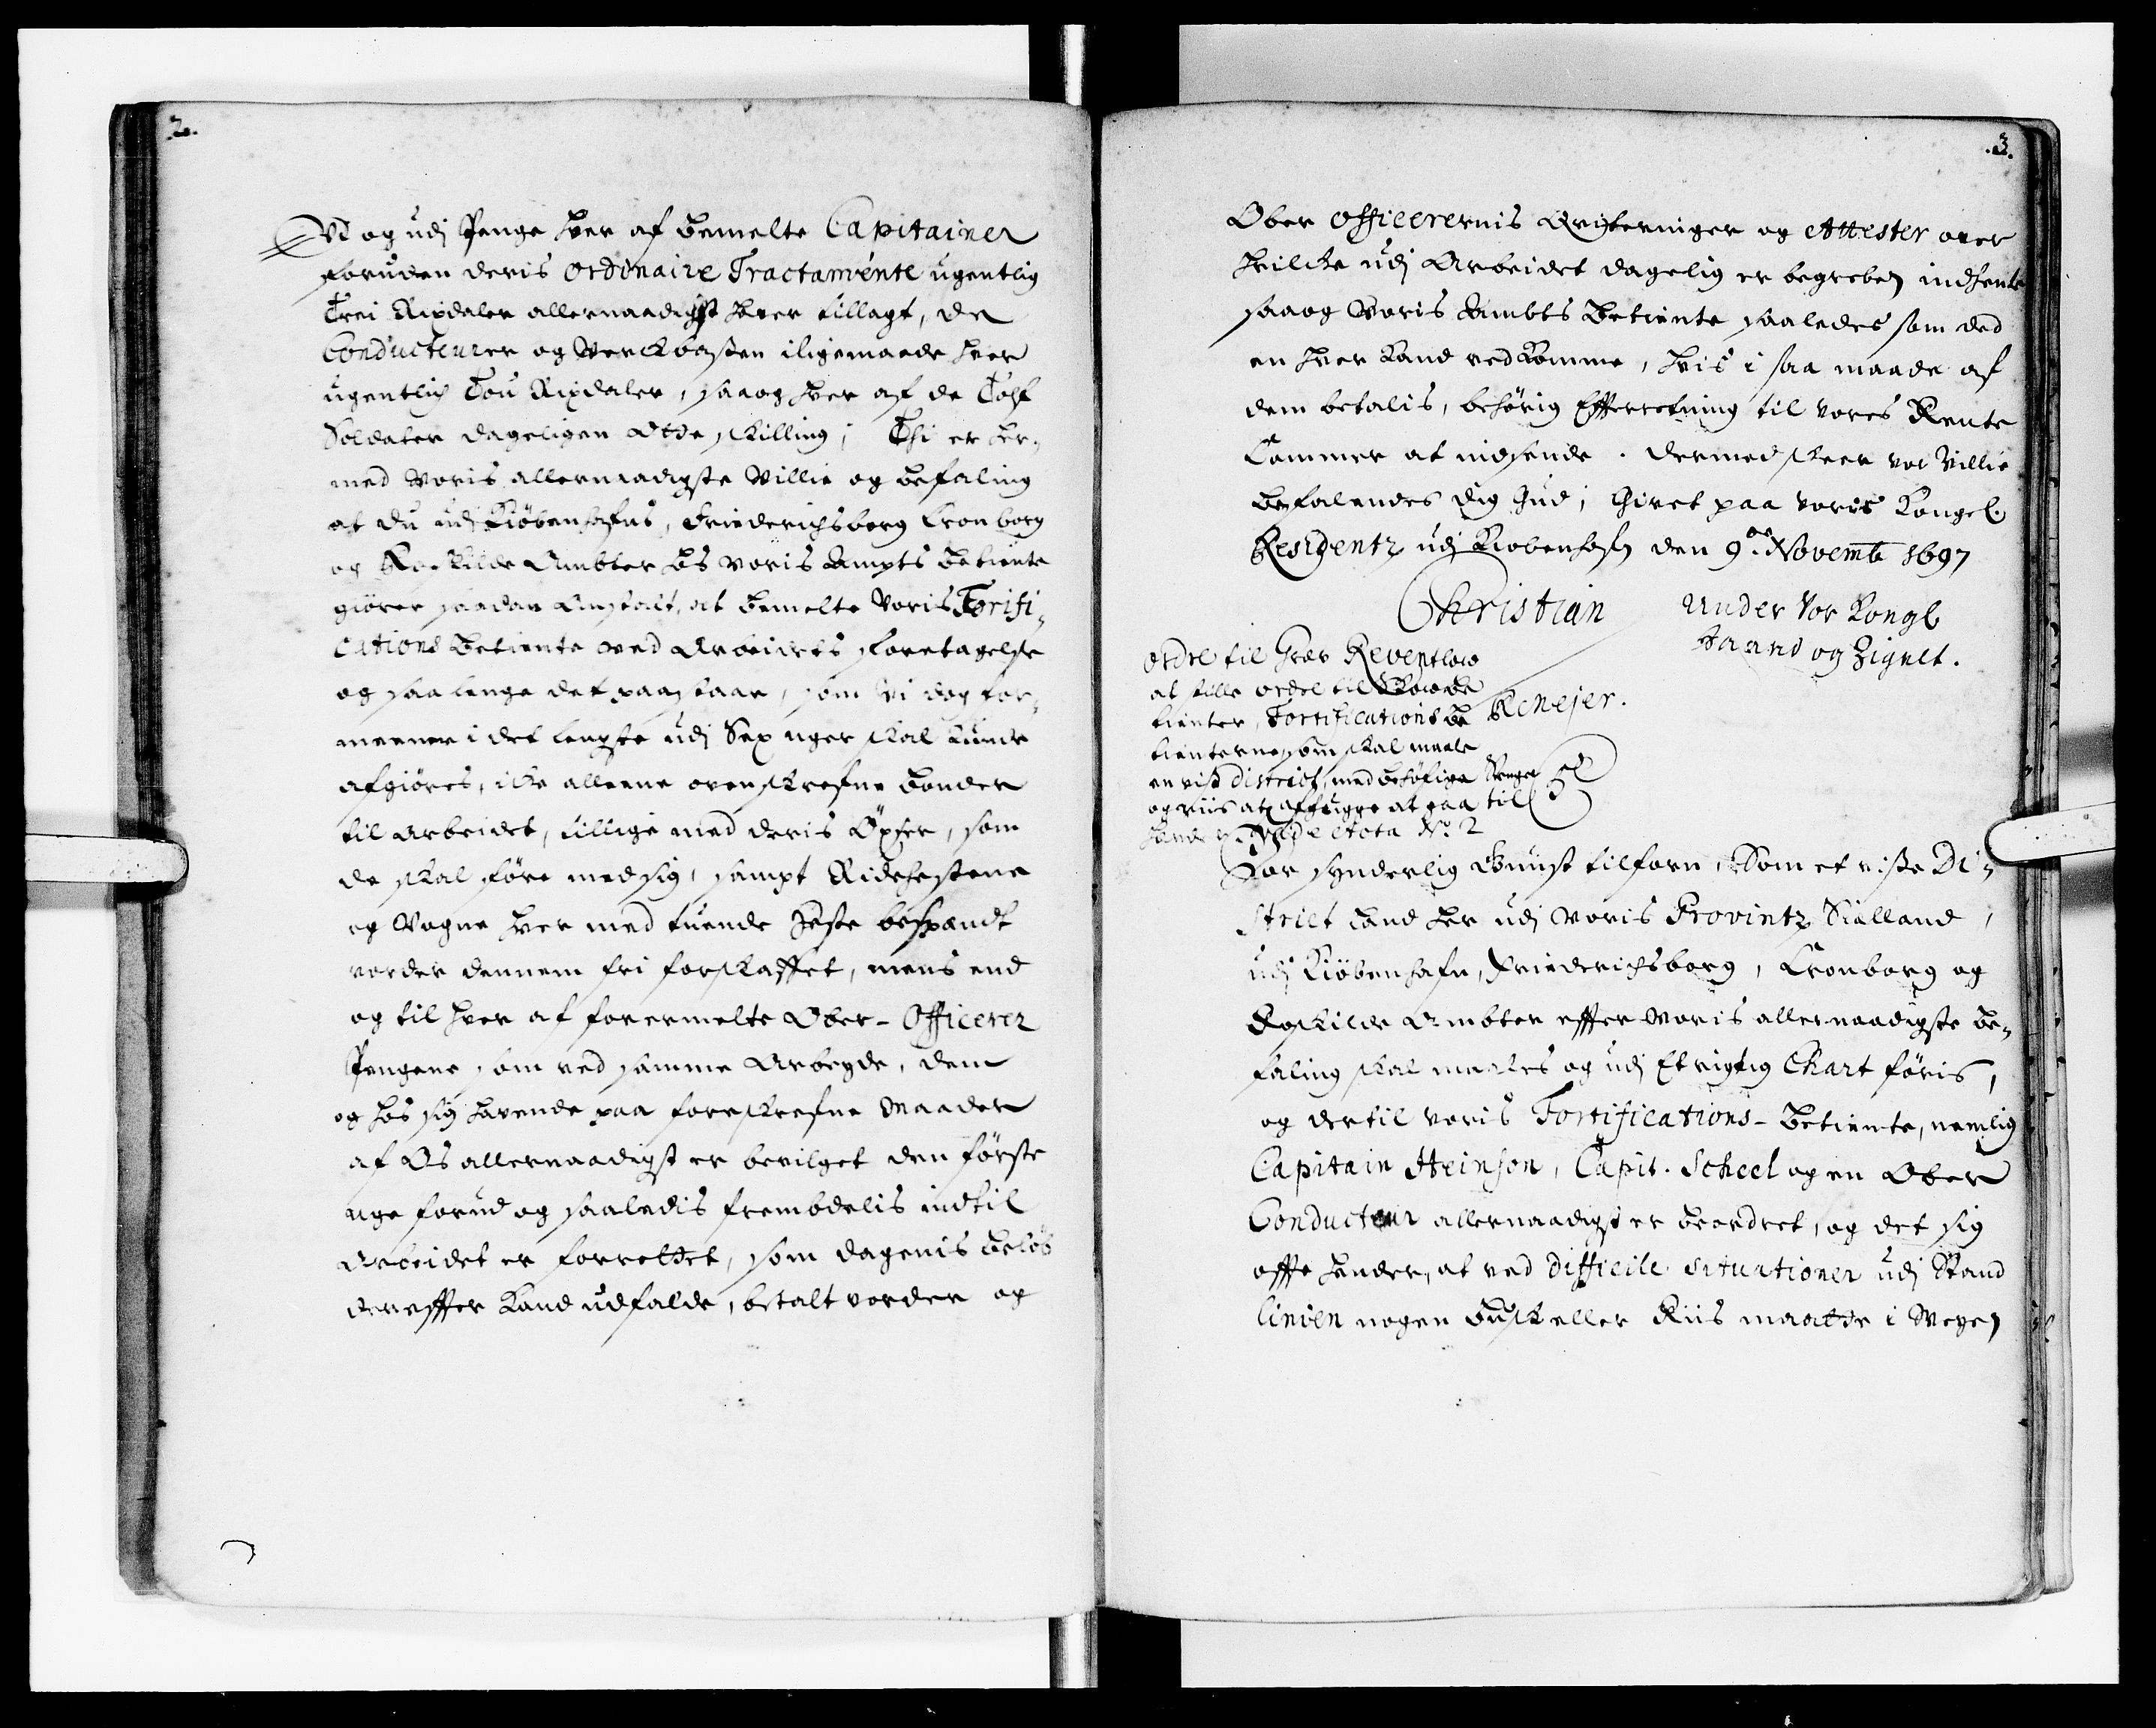 2.
Vd og udj Penge hver af bemelte Capitainer
foruden deris ordinaire Tractamente ugentlig
Trei Rixdaler allernaadigst hver tillagt, de
Conducteurer og Verckbasen iligemaade hver
ugentlig Tou Rixdaler, saa og hver af de Tolf
Soldater dageligen Otte skilling; Thi er her,
med Voris allernaadigste Villie og befaling
at du udj Kiøbenhafns, Friederichsborg Cronborg
og Roeskilde Ambter hos voris Ampts betiente
giører saadan Anstalt, at bemelte Voris Fortifi,
cations betiente ved Arbeidets foretagelse
og saa lenge det paastaar, som Vi dog for,
meener i det lengste udj Sex uger skal kunde
afgiöres, icke alleene ovenskrefne bønder
til arbeidet, tillige med deris Öxser, som
de skal före med sig, sampt Ridehestene
og Vogne hver med tuende Heste bespændt
vorder dennem fri forskaffet, mens end
og til hver af forermelte Ober-Officerer
Pengene som ved samme Arbeyde, dem
og hos sig havende paa foreskrefne Maader
af Os allernaadigst er bevilget den förste
uge forud og saaledis frembdelis indtil
Arbeidet er forrettet, som dagenis beløb
dereffter kand udfalde, betalt vorder og
3.
Ober Officerernis Qviteringer og Attester over
hvilcke udj Arbeidet dagelig er begreben indhente
saa og Voris Ambts betiente saaledes som det
en hver kand vedkomme, hvis i saa maade af
dem betalis, behörig Efferretning til vores Rente
Cammer at indsende. Dermed skeer vor Villie
Befalendes dig Gud; Givet paa voris Kongel.
Residentz udj Kiøbenhafn den 9de Novemb 1697
Christian
Under Vor Kongl
Haand og Zignet.
Ordre til Grev Reventlow
at stille ordre til Skowbe
tienter, Fortifications be
tienterne som skal maale
en vist district, med behöfige Penge
og riis at afhugge at gaa til
Haande vide Nota No. 2
Vor synderlig Gunst tilforn, Som et visse Di,
strict land her udj voris Provintz Siælland,
udj Kiöbenhafn, Friederichsborg, Cronborg og
Roskilde Ambter effter Voris allernaadigste be,
faling skal maales og udj Et rigtig Chart føris,
og dertil voris Fortifications-betiente, nemlig
Capitain Heinson, Capit. Scheel og en Ober
Conducteur allernaadigst er beordret, og det sig
offte hender, at ved difficile situationer udj Stand
linien nogen busk eller Riis maatte i Vegen